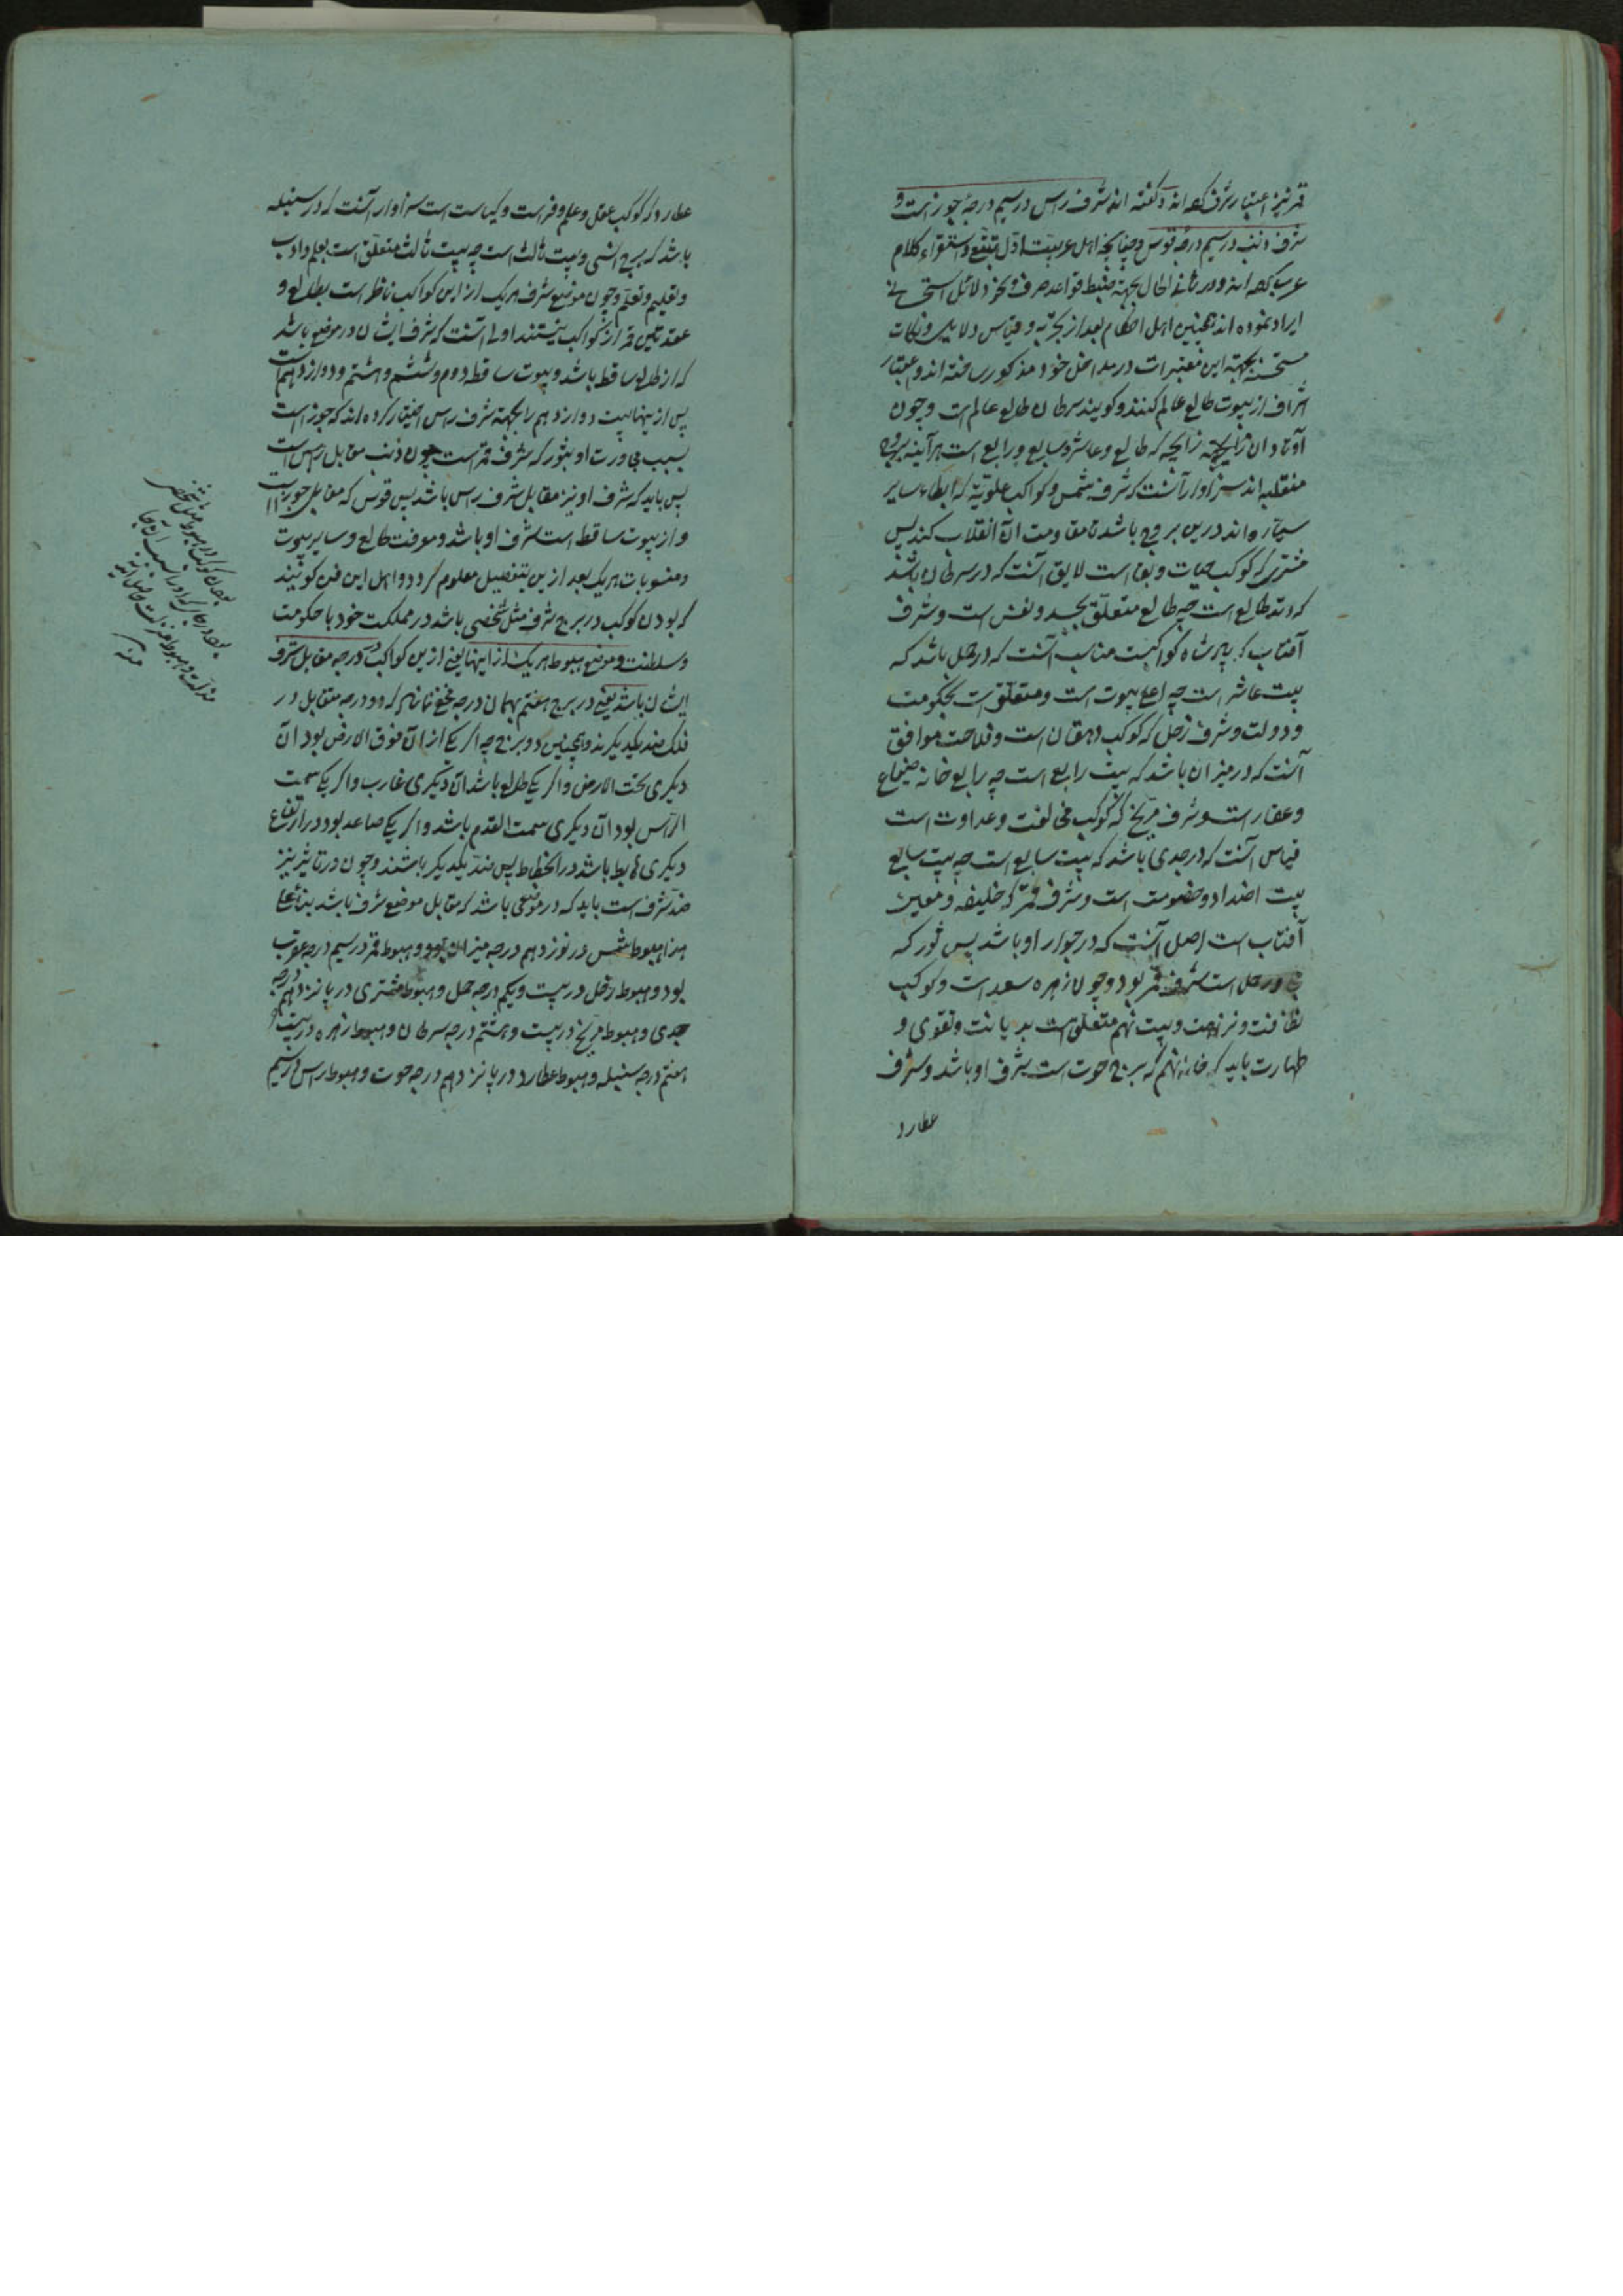 قمر نیز اعتبار شرف کرده‌اند و گفته اند شرف راس در سیم درجهٔ جوزاست و
شرف ذنب در سیم درجهٔ قوس و چنانچه اهل عربیت اول تتبع و استقراء کلام
عرب کرده‌اند و در ثانی الحال بجهة ضبط قواعد صرف و نحو دلائل استحسانی
ایراد نموده اند همچنین اهل احکام بعد از تجربه و قیاس دلایل و نکات
مستحسنه بجهة این معتبرات در مداخل خود مذکور ساخته اند و اعتبار
اشراف از بیوت طالع عالم کنند و گویند سرطان طالع عالم است و چون
اوتاد آن زایجه که طالع و عاشر و سابع و رابع است هرآینه بروج
منقلبه اند سزاوار آنست که شرف شمس و کواکب علویه که ابطاء سایر
سیاره اند درین بروج باشد تا مقاومت آن انقلاب کند پس
مشتری که کوکب حیات و بقا است لایق آنست که در سرطان باشد
که وتد طالع است چه طالع متعلق بجسد و نفس است و شرف
آفتاب که پادشاه کواکبست مناسب آنست که در حمل باشد که
بیت عاشر است چه اعلی بیوت است و متعلق است بحکومت
و دولت و شرف زحل که کوکب دهقان است و فلاحت موافق
آنست که در میزان باشد که بیت رابع است چه رابع خانه ضیاع
و عقار است و شرف مریخ که کوکب مخالفت و عداوت است
قیاس آنست که در جدی باشد که بیت سابع است چه بیت سابع
بیت اضداد و خصومت است و شرف قمر که خلیفه و معین
آفتاب است اصل آنست که در جوار او باشد پس ثور که
مجاور حمل است شرف قمر بود و چون زهره سعد است و کوکب
نظافت و نزاهت و بیت نهم متعلق است بدیانت و تقوی و
طهارت باید که خانه نهم که برج حوت است شرف او باشد و شرف
عطارد
عطارد که کوکب عقل و علم و فراست و کیاست است سزاوار آنست که در سنبله
باشد که برج انسی و بیت ثالث است چه بیت ثالث متعلق است بعلم و ادب
و تعلیم و تعلم و چون موضع شرف هریک از این کواکب ناظر است بطالع و
عقدتین قمر از کواکب نیستند اولی آنست که شرف ایشان در موضعی باشد
که از طالع ساقط باشد و بیوت ساقطه دوم و ششم و هشتم و دوازدهم است
پس از اینها بیت دوازدهم را بجهة شرف راس اختیار کرده اند که جوزاست
بسبب مجاورت او بثور که شرف قمر است و چون ذنب مقابل راس است
پس باید که شرف او نیز مقابل شرف راس باشد پس قوس که مقابل جوزاست
و از بیوت ساقط است شرف او باشد و معرفت طالع و سایر بیوت
و منسوبات هریک بعد ازین بتفصیل معلوم گردد و اهل این فن گویند
که بودن کوکب در برج شرف مثل شخصی باشد در مملکت خود با حکومت
و سلطنت و موضع هبوط هریک از اینها یعنی ازین کواکب در درجه مقابل شرف
ایشان باشد یعنی در برج هفتم بهمان درجه مخفی نماند که دو درجه متقابل در
فلک ضد یکدیگرند و همچنین دو برج چه اگر یکی از آن فوق الارض بود آن
دیگری تحت الارض و اگر یکی طالع باشد آن دیگری غارب و اگر یکی سمت
الراس بود آن دیگری سمت القدم باشد و اگر یکی صاعد بود در ارتفاع
دیگری هابط باشد در انحطاط پس ضد یکدیگر باشند و چون در تاثیر نیز
ضد شرف است باید که در موضعی باشد که مقابل موضع شرف باشد بناءً علی
هذا هبوط شمس در نوزدهم درجه میزان بود و هبوط قمر در سیم درجه عقرب
بود و هبوط زحل در بیست و یکم درجه حمل و هبوط مشتری در پانزدهم درجه
جدی و هبوط مریخ در بیست و هشتم درجه سرطان و هبوط زهره در بیست و
هفتم درجه سنبله و هبوط عطارد در پانزدهم درجه حوت و هبوط راس در سیم
بودن کوکب در هبوط مثل شخصی
منه